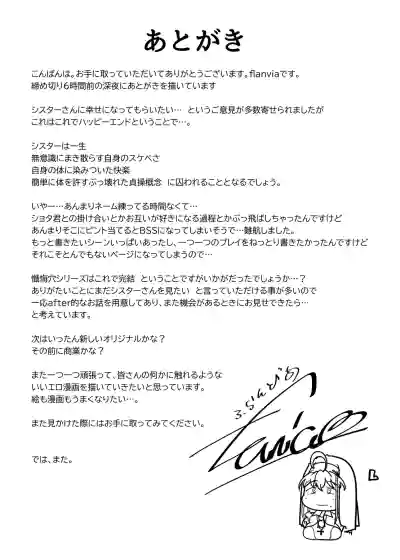 あとがき
こんばんは。お手に取っていただいてありがとうございます。flanviaです。
締め切り6時間前の深夜にあとがきを描いています
シスターさんに幸せになってもらいたい… というご意見が多数寄せられましたが
これはこれでハッピーエンドということで…。
シスターは一生
無意識にまき散らす自身のスケベさ
自身の体に染みついた快楽
簡単に体を許すぶっ壊れた貞操概念 に囚われることとなるでしょう。
いやー…あんまりネーム練ってる時間なくて…
ショタ君との掛け合いとかお互いが好きになる過程とかぶっ飛ばしちゃったんですけど
あんまりそこにピント当てるとBSSになってしまいそうで…難航しました。
もっと書きたいシーンいっぱいあったし、一つ一つのプレイをねっとり書きたかったんですけど
それこそとんでもないページになってしまうので…
懺悔穴シリーズはこれで完結 ということですがいかがだったでしょうか…?
ありがたいことにまだシスターさんを見たい と言っていただける事が多いので
一応after的なお話を用意しており、また機会があるときにお見せできたら…
と考えています。
次はいったん新しいオリジナルかな?
その前に商業かな?
また一つ一つ頑張って、皆さんの何かに触れるような
いいエロ漫画を描いていきたいと思っています。
絵も漫画もうまくなりたい…。
また見かけた際にはお手に取ってみてください。
では、また。